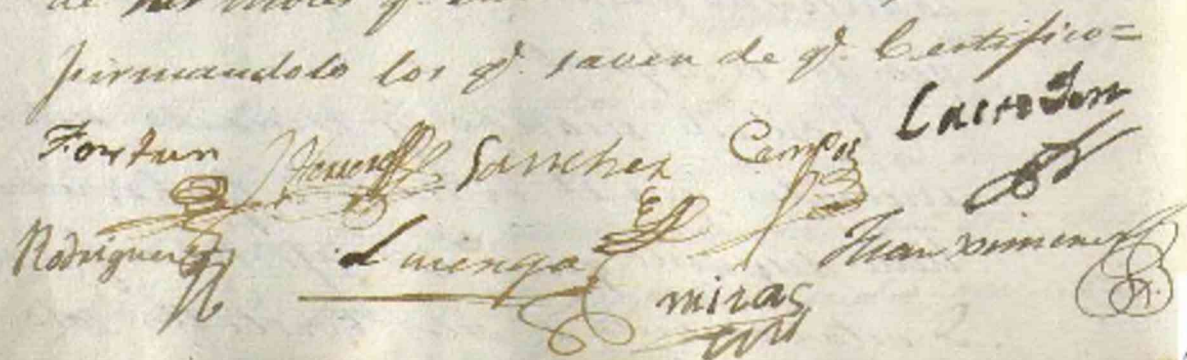 firmandolo los qe. saven de qe. Certifico=
Fortun Sanchez Campos
Rodriguez Luengo miras Juan Ximenez